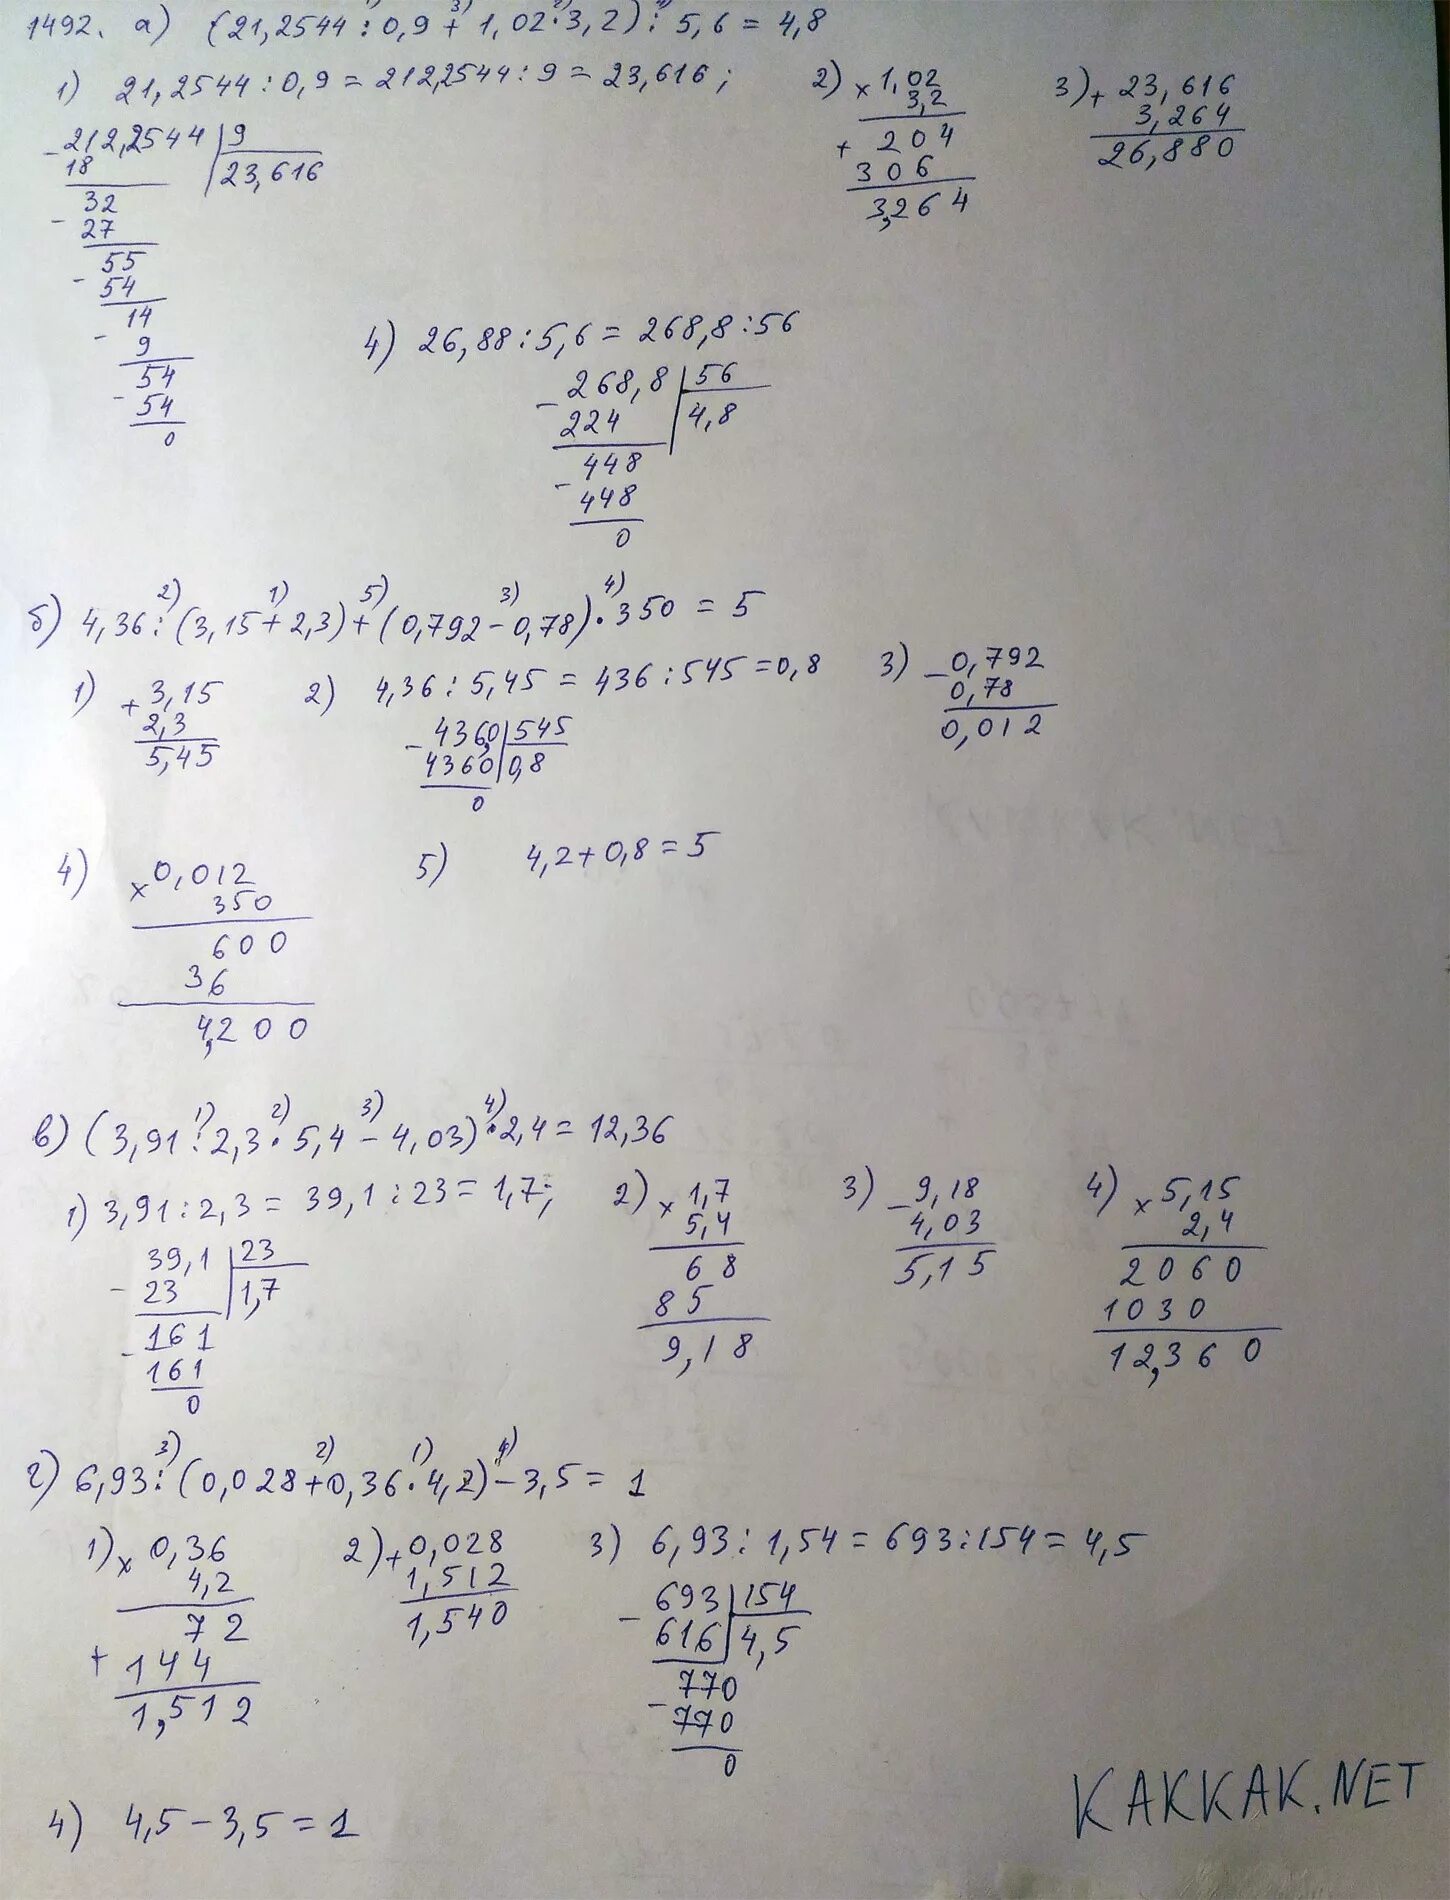 1492. а) (21,2544 : 0,9 + 1,02 · 3,2) : 5,6 = 4,8
1) 21,2544 : 0,9 = 212,2544 : 9 = 23,616 ;
212,2544 | 9
18 | 23,616
- 32
27
- 55
54
- 14
9
- 54
54
0
2) × 1,02
3,2
+ 204
306
3,264
3) + 23,616
3,264
26,880
4) 26,88 : 5,6 = 268,8 : 56
- 268,8 | 56
224 | 4,8
- 448
448
0
б) 4,36 : (3,15 + 2,3) + (0,792 - 0,78) · 350 = 5
2) 1) 5) 3) 4)
1) + 3,15
2,3
5,45
2) 4,36 : 5,45 = 436 : 545 = 0,8
- 436,0 | 545
4360 | 0,8
0
3) - 0,792
0,78
0,012
4) × 0,012
350
600
36
4,200
5) 4,2 + 0,8 = 5
в) (3,91 : 2,3 · 5,4 - 4,03) · 2,4 = 12,36
1) 2) 3) 4)
1) 3,91 : 2,3 = 39,1 : 23 = 1,7 ;
- 39,1 | 23
23 | 1,7
- 161
161
0
2) × 1,7
5,4
68
85
9,18
3) - 9,18
4,03
5,15
4) × 5,15
2,4
2060
1030
12,360
г) 6,93 : (0,028 + 0,36 · 4,2) - 3,5 = 1
3) 2) 1) 4)
1) × 0,36
4,2
72
+ 144
1,512
2) + 0,028
1,512
1,540
3) 6,93 : 1,54 = 693 : 154 = 4,5
- 693 | 154
616 | 4,5
- 770
770
0
4) 4,5 - 3,5 = 1
KAKKAK.NET